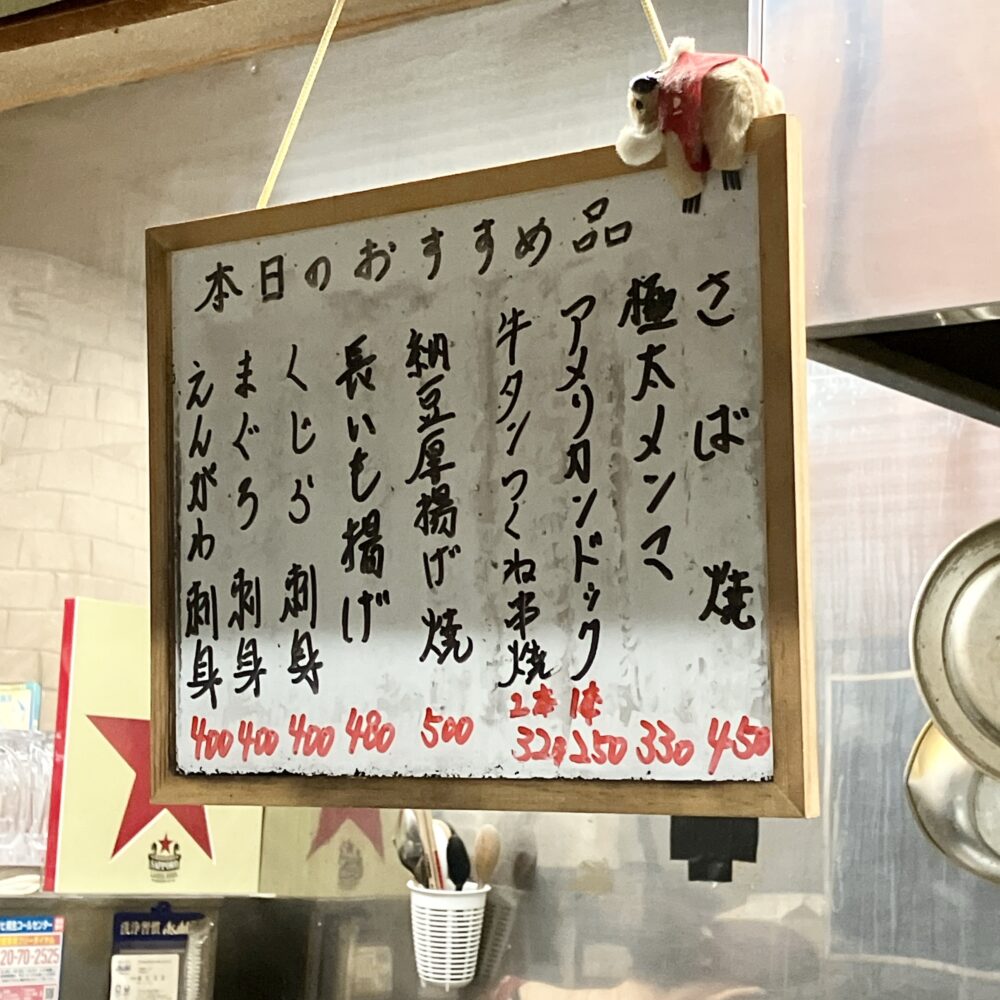 本日のおすすめ品
さば焼 450
極太メンマ 330
アメリカンドック 1本 250
牛タンつくね串焼 2本 320
納豆厚揚げ焼 500
長いも揚げ 480
くじら刺身 400
まぐろ刺身 400
えんがわ刺身 400
SAPPORO
コールセンター
20-70-2525
洗浄習慣